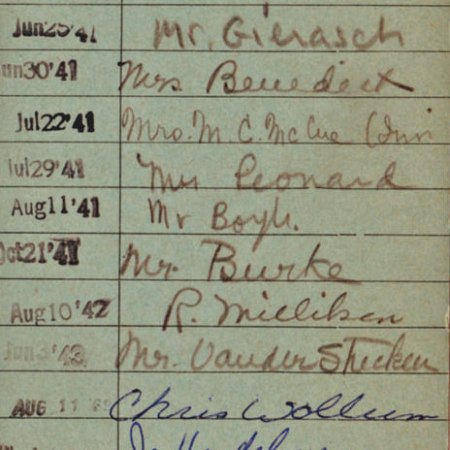 Jun25'41 Mr. Gierasch
un30'41 Mrs Benedict
Jul22'41 Mrs. M. C. McCue
Jul29'41 Mrs Leonard
Aug11'41 Mr Boyle.
Oct21'41 Mr. Burke
Aug10'42 R. Milliken
Jun3'43 Mr. VanderStucken
AUG 11 Chris Wollum